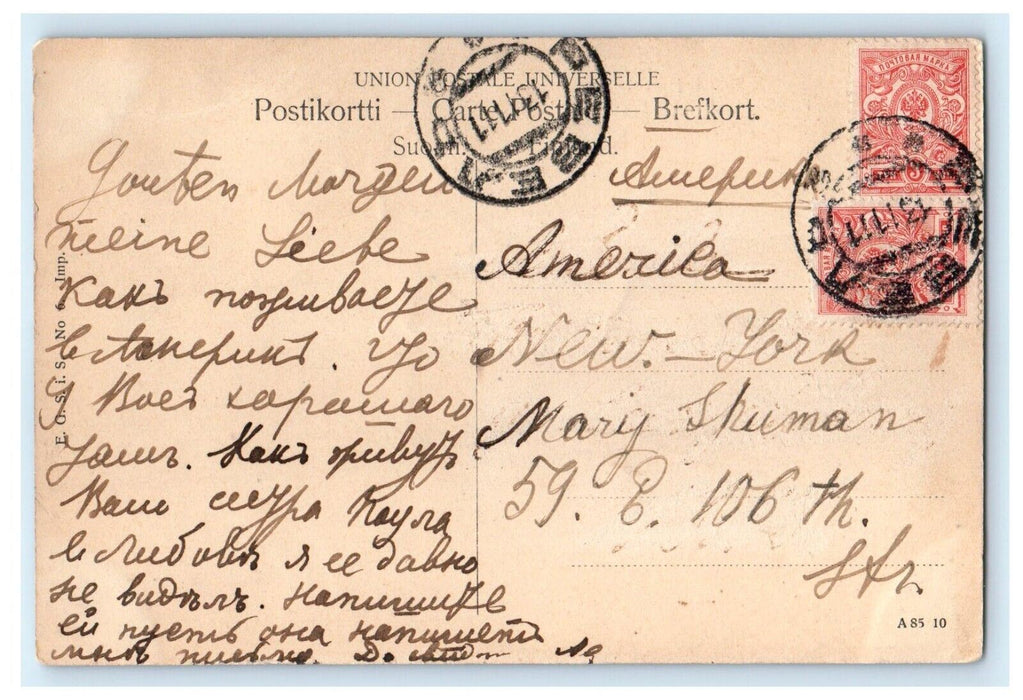 UNION POSTALE UNIVERSELLE
Postikortti — Carte Postale — Brefkort.
Suomi. Finland.
ПОЧТОВАЯ МАРКА
Gouten Morgen
meine Liebe
Какъ поживаете
в Америкѣ. Что
у Васъ хорошаго
тамъ. Какъ живутъ
Ваш сестра
я ее давно
не видѣлъ. Напишите
ей пусть она напишетъ
мнѣ письмо.
Америка
America
New.-York
Mary Skuman
59. E. 106 th.
Str.
E. G. S. i. S. No Imp.
A 85 10